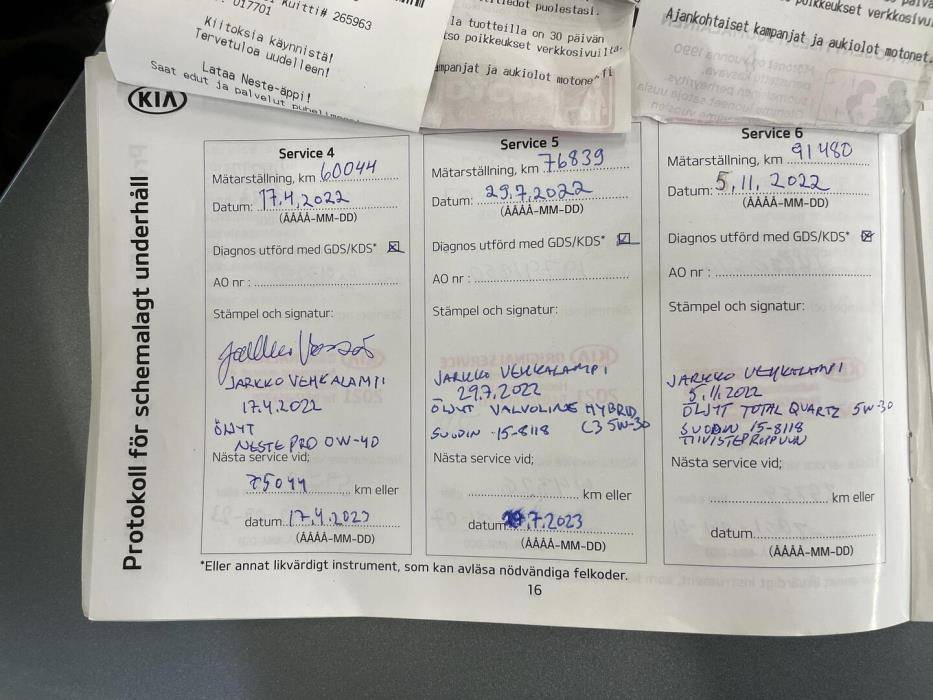 017701
Kuitti# 265963
Kiitoksia käynnistä!
Tervetuloa uudelleen!
Lataa Neste-äppi!
Saat edut ja palvelut
puolestasi.
la tuotteilla on 30 päivän
tso poikkeukset verkkosivuilta.
ampanjat ja aukiolot motone
poikkeukset verkkosivui
Ajankohtaiset kampanjat ja aukiolot motonet.
KIA
Protokoll för schemalagt underhåll
Service 4
Mätarställning, km 60044
Datum: 17.4.2022
(ÅÅÅÅ-MM-DD)
Diagnos utförd med GDS/KDS*
AO nr :
Stämpel och signatur:
JARKKO VEHKALAMPI
17.4.2022
ÖLJYT
NESTE PRO 0W-40
Nästa service vid;
75044 km eller
datum 17.4.2023
(ÅÅÅÅ-MM-DD)
Service 5
Mätarställning, km 76839
Datum: 29.7.2022
(ÅÅÅÅ-MM-DD)
Diagnos utförd med GDS/KDS*
AO nr :
Stämpel och signatur:
JARKKO VEHKALAMPI
29.7.2022
ÖLJYT VALVOLINE HYBRID
C3 5W-30
SUODIN 15-8118
Nästa service vid;
km eller
datum 29.7.2023
(ÅÅÅÅ-MM-DD)
Service 6
Mätarställning, km 91480
Datum: 5.11.2022
(ÅÅÅÅ-MM-DD)
Diagnos utförd med GDS/KDS*
AO nr :
Stämpel och signatur:
JARKKO VEHKALAMPI
5.11.2022
ÖLJYT TOTAL QUARTZ 5W-30
SUODIN 15-8118
TIIVISTEPRUPUUN
Nästa service vid;
km eller
datum
(ÅÅÅÅ-MM-DD)
*Eller annat likvärdigt instrument, som kan avläsa nödvändiga felkoder.
16